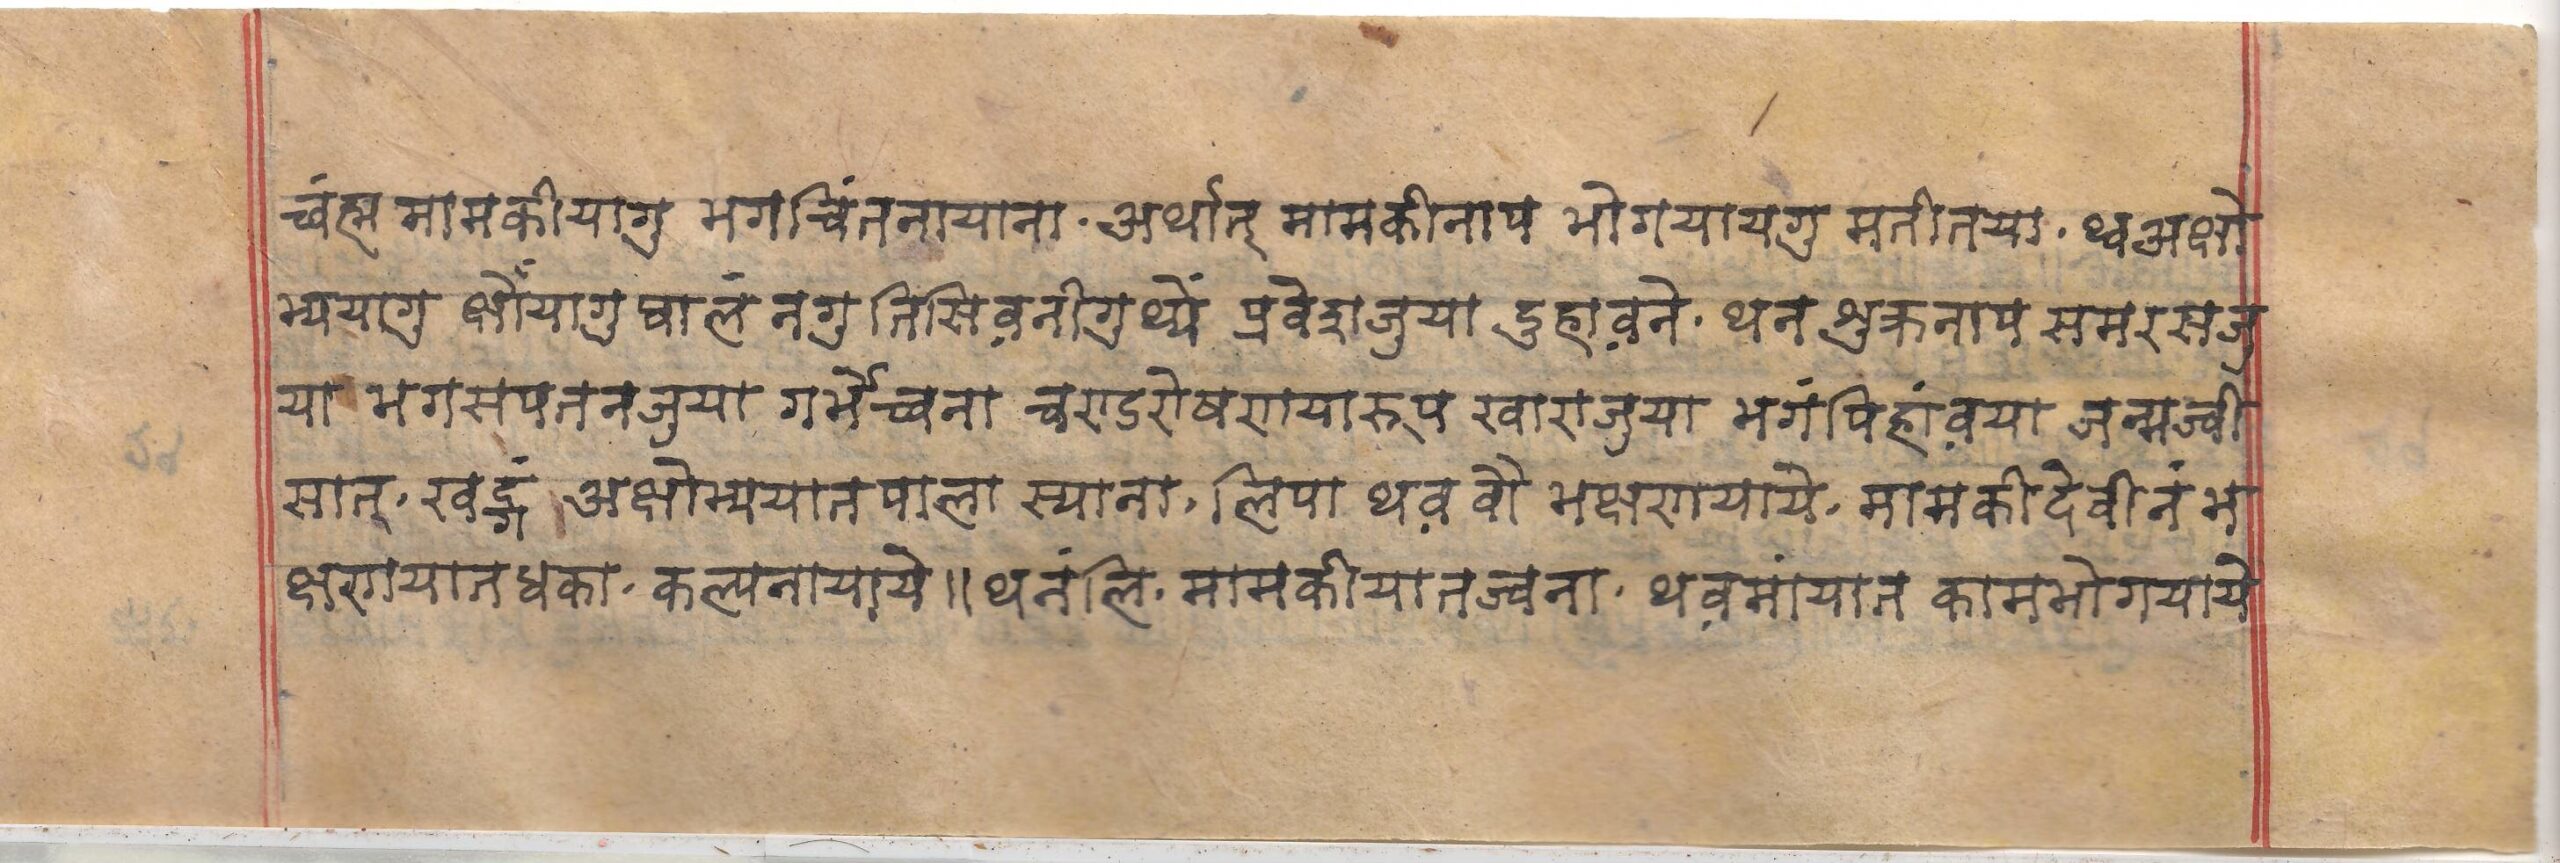 च्वंह्म मामकीयागु भगचिंतनायाना · अर्थात् मामकीनाप भोगयायगु मतीतया · थ्वअक्षो
भ्ययागु क्षौंयागु घालं नगु तिसिव़नीगुथ्यें प्रवेशजुया दुहाव़ने · थन शुक्रनाप समरसजु
या भगसपतनजुया गर्भेच्वना चण्डरोषणयारूप ख्वाराजुया भगंपिहांव़या जन्मज्वी
सात् · खड्गं अक्षोभ्ययातपाला स्याना · लिपा थव़बौ भक्षणयाये · मामकीदेवीनं भ
क्षणयातधका · कल्पनायाये ॥ थनंलि · मामकीयातज्वना · थव़मांयात कामभोगयाये